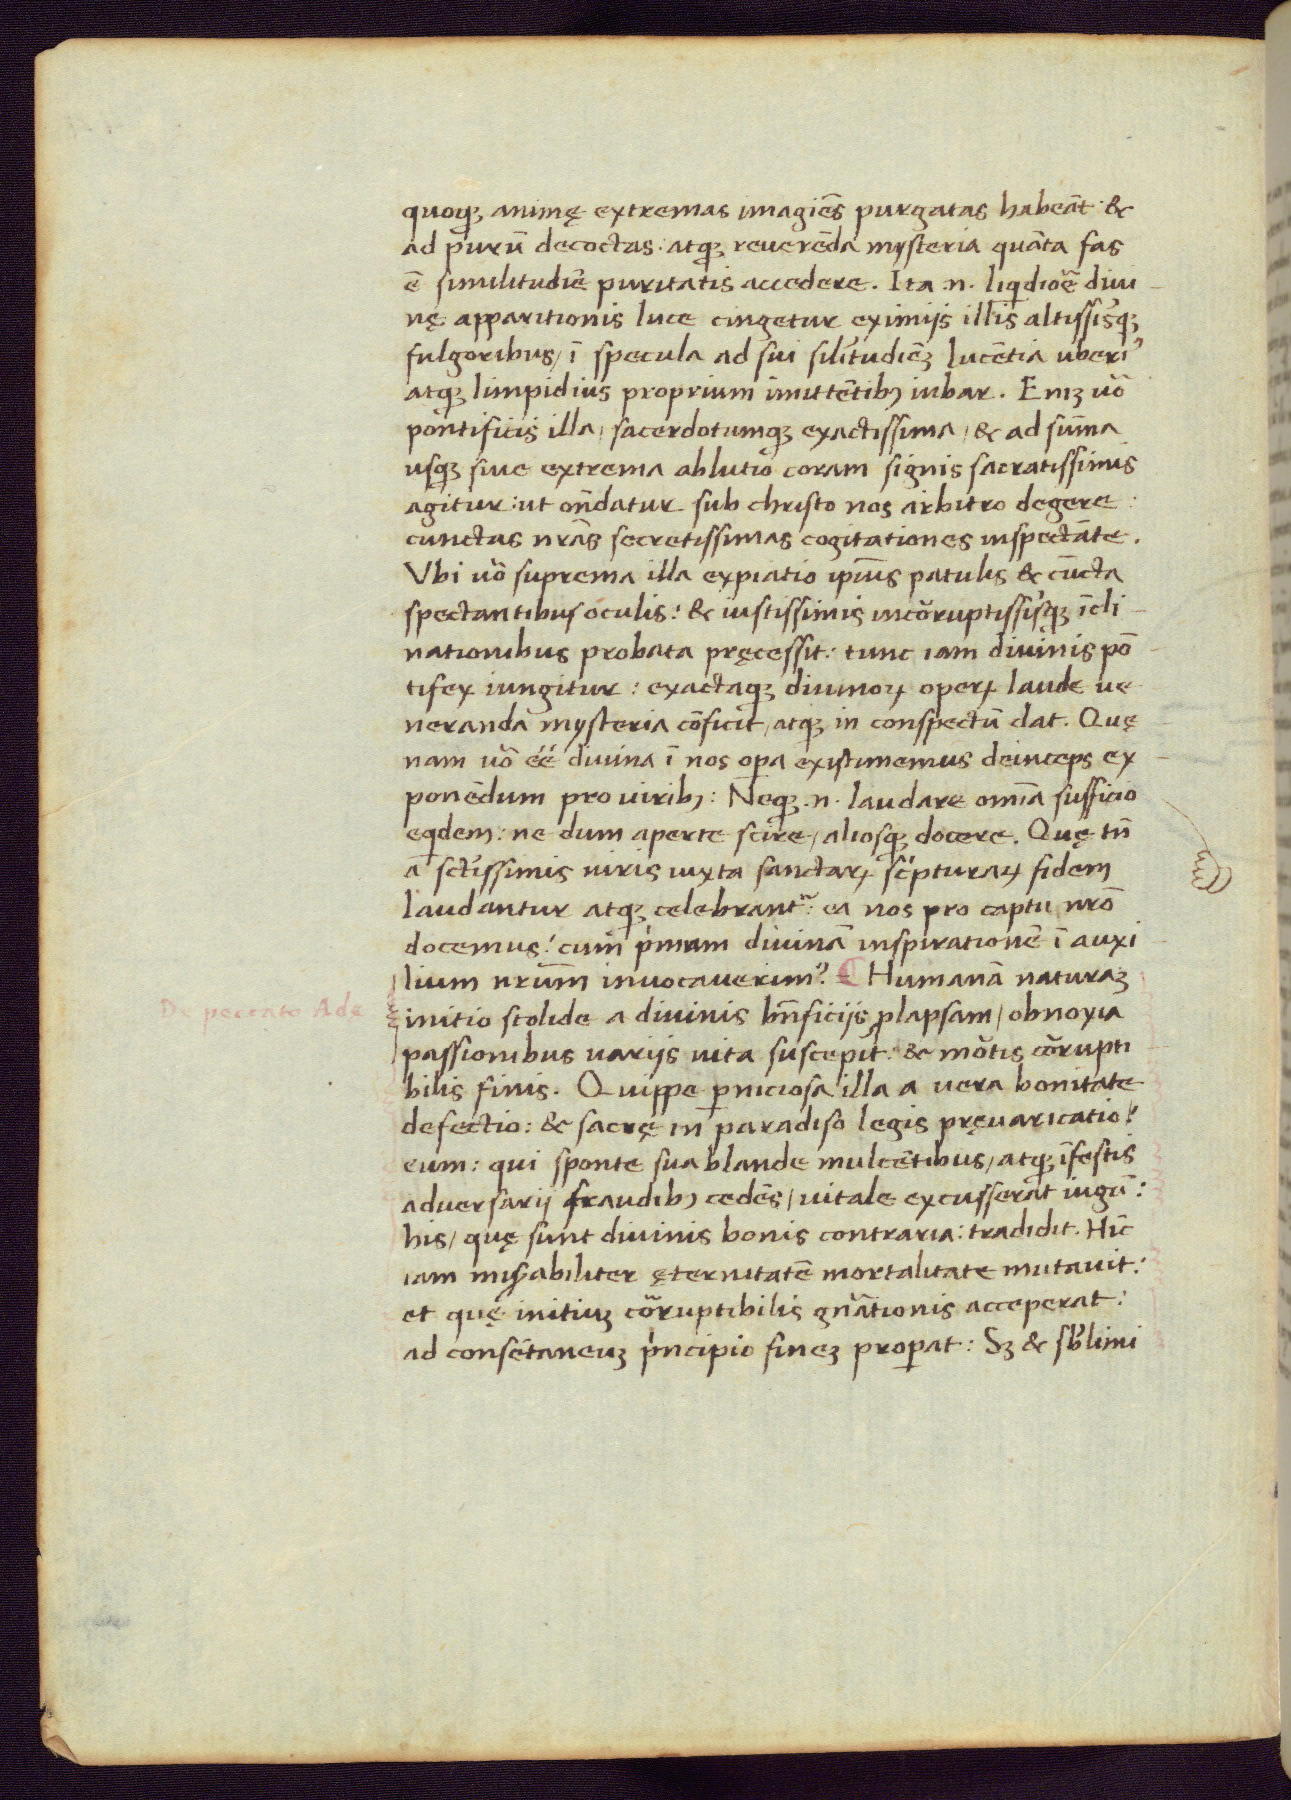 quoqꝫ animę extremas imagiēs purgatas habeāt: &
ad purū decoctas. atqꝫ reverēda mysteria quāta fas
ē similitudiē puritatis accedere. Ita .n. liqdiorē divi
nę apparitionis luce cingetur eximijs illis altissīsqꝫ
fulgoribus/ ī specula ad sui silitudiēꝫ lucētia uberiꝰ
atqꝫ limpidius proprium īmittētibꝫ iubar. Enīꝫ uō
pontificis illa/ sacerdotumqꝫ exactissima/ & ad sum̄a
usqꝫ sive extrema ablutio coram signis sacratissimis
agitur: ut on̄datur sub christo nos arbitro degere
cunctas nrās secretissimas cogitationes inspectāte.
Vbi uō suprema illa expiatio ipiꝰ patulis & cūcta
spectantibus oculis: & iustissimis incorruptissīsqꝫ īcli
nationibus probata pręcessit: tunc iam divinis pō
tifex iungitur: exactaqꝫ divinoꝝ operꝝ laude ve
neranda mysteria cōficit/ atqꝫ in conspectū dat. Quę
nam uō éé divina ī nos opa existimemus deinceps ex
ponēdum pro viribꝫ: Neqꝫ .n. laudare omīa sufficio
eqdem: ne dum aperte scire/ aliosqꝫ docere. Quę tn̄
a sctissimis viris iuxta sanctaꝝ scripturaꝝ fidem
laudantur atqꝫ celebrantᷣ: ea nos pro captu nrō
docemus: cum prinam divinā inspirationē ī auxi
lium nrūm invocaverimꝰ. ¶ Humanā naturaꝫ
De peccato Adę
initio stolide a divinis bn̄ficijs ꝓlapsam/ obnoxia
passionibus varijs vita suscepit: & mortis corrupti
bilis finis. Quippe ꝑniciosa illa a vera bonitate
defectio: & sacrę in paradiso legis pręvaricatio:
eum: qui sponte sua blande mulcētibus/ atqꝫ īfestis
adversarij fraudibꝫ cedēs/ vitale excusserat iugū:
his/ quę sunt divinis bonis contraria: tradidit. Hīc
iam misabiliter ęternitatē mortalitate mutavit:
et quę initiuꝫ corruptibilis gn̄ationis acceperat:
ad consētaneuꝫ principio fineꝫ properat: Sꝫ & sublimi